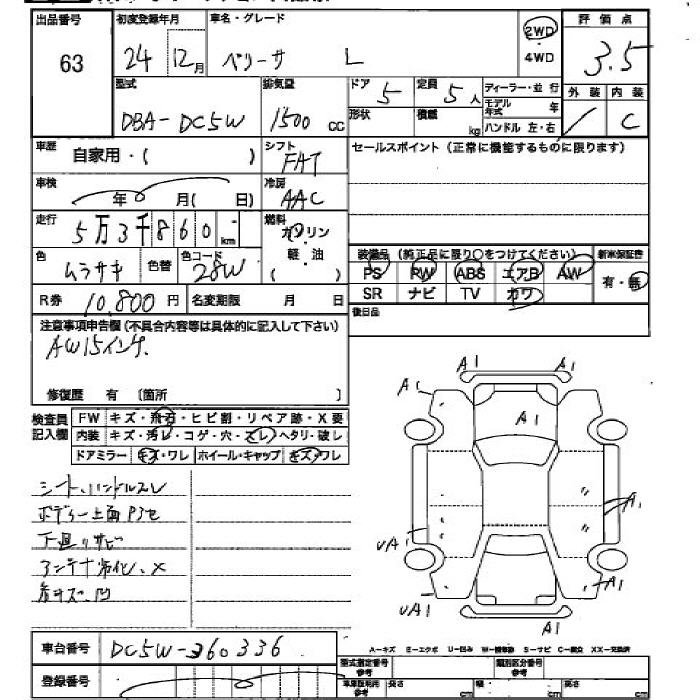 出品番号 初度登録年月 車名・グレード 2WD 評価点
63 24 12月 ベリーサ L 4WD 3.5
型式 排気量 ドア 定員 ディーラー・並行 外装 内装
DBA-DC5W 1500cc 5 5人 モデル年式 C
形状 積載 kg ハンドル 左・右
車歴 自家用・( ) シフト FAT セールスポイント(正常に機能するものに限ります)
車検 年 月( 日) 冷房 AAC
走行 5万3千860km 燃料 ガソリン
軽・油
( )
色 ムラサキ 色替 色コード 28W 装備品(純正品に限り○をつけてください) 新車保証書
PS PW ABS エアB AW 有・無
R券 10,800円 名変期限 月 日 SR ナビ TV カワ
後日品
注意事項申告欄(不具合内容等は具体的に記入して下さい)
AW15インチ.
修復歴 有 〔箇所 〕
検査員記入欄 FW キズ・飛石・ヒビ割・リペア跡・X要
内装 キズ・汚レ・コゲ・穴・スレ・ヘタリ・破レ
ドアミラー キズ・ワレ ホイール・キャップ キズ・ワレ
シート、ハンドルスレ
ボディー上面
下廻りサビ
アンテナ劣化、X
A1 A1
A1
A1
A1
UA1
A1
UA1
A1
車台番号 DC5W-360336
A-キズ E-エクボ U-凹み S-サビ
登録番号
型式指定番号 参考 類別区分番号 参考
長さ cm 幅 cm 高さ cm